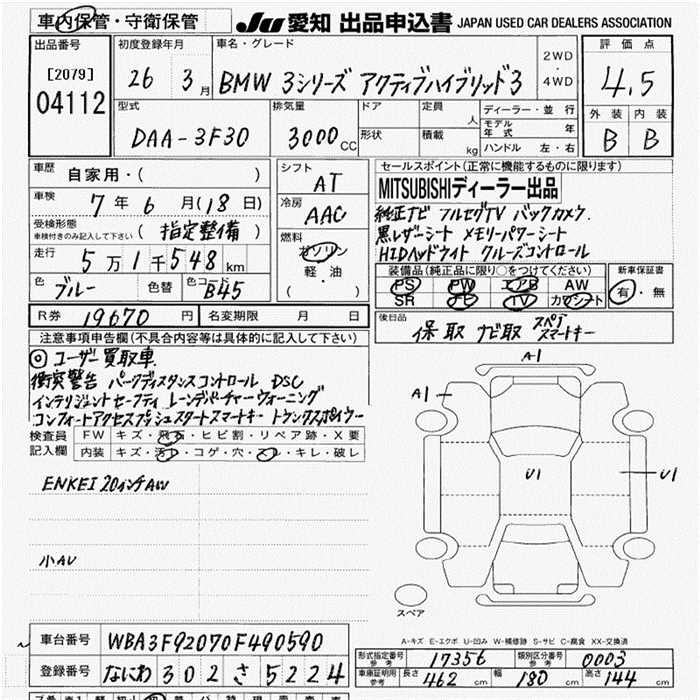 車内保管・守衛保管 JU 愛知 出品申込書 JAPAN USED CAR DEALERS ASSOCIATION
出品番号 初度登録年月 車名・グレード 評価点
[2079] 26 3月 BMW 3シリーズ アクティブハイブリッド3 2WD・4WD 4.5
04112
型式 排気量 ドア 定員 人 ディーラー・並行 外装 内装
DAA-3F30 3000CC 形状 積載 kg モデル年式 年 B B
ハンドル 左・右
車歴 自家用・( ) シフト AT セールスポイント(正常に機能するものに限ります)
車検 7年6月(18日) 冷房 AAC MITSUBISHIディーラー出品
受検形態 車検付きのみ記入して下さい (指定整備) 燃料 ガソリン 純正ナビ フルセグTV バックカメラ
黒レザーシート メモリーパワーシート
走行 5万1千548km 軽・油 HIDヘッドライト クルーズコントロール
色 ブルー 色替 色コード B45 ( ) 装備品(純正品に限り○をつけてください) 新車保証書
PS PW エアB AW 有・無
SR ナビ TV カワシート
R券 19670円 名変期限 月 日 後日品 保取 ナビ取 スペア スマートキー
注意事項申告欄(不具合内容等は具体的に記入して下さい)
◎ユーザー買取車
衝突警告 パークディスタンスコントロール DSC
インテリジェントセーフティ レーンデパーチャーウォーニング
コンフォートアクセスプッシュスタートスマートキー トランクスポイラー
検査員記入欄 FW キズ・飛石・ヒビ割・リペア跡・X要
内装 キズ・汚レ・コゲ・穴・スレ・キレ・破レ
ENKEI 20インチAW
小AU
A1
A1
U1
U1
スペア
A-キズ E-エクボ U-凹み W-補修跡 S-サビ C-腐食 XX-交換済
車台番号 WBA3F92070F490590
型式指定番号 参考 17356 類別区分番号 参考 0003
登録番号 なにわ 302 さ 5224
車庫証明用 参考 長さ 462cm 幅 180cm 高さ 144cm